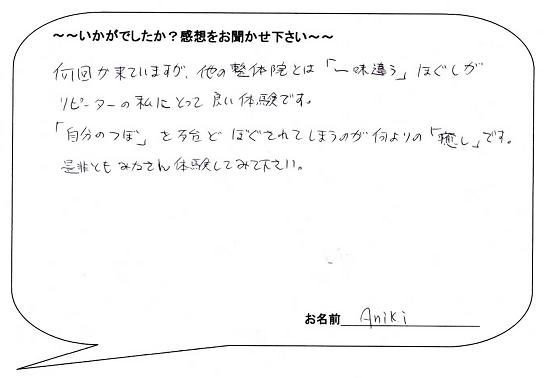 ~~いかがでしたか?感想をお聞かせ下さい~~
何回か来ていますが、他の整体院とは「一味違う」ほぐしが
リピーターの私にとって良い体験です。
「自分のつぼ」を ほぐされてしまうのが何よりの「癒し」です。
是非ともみなさん体験してみて下さい。
お名前 Aniki